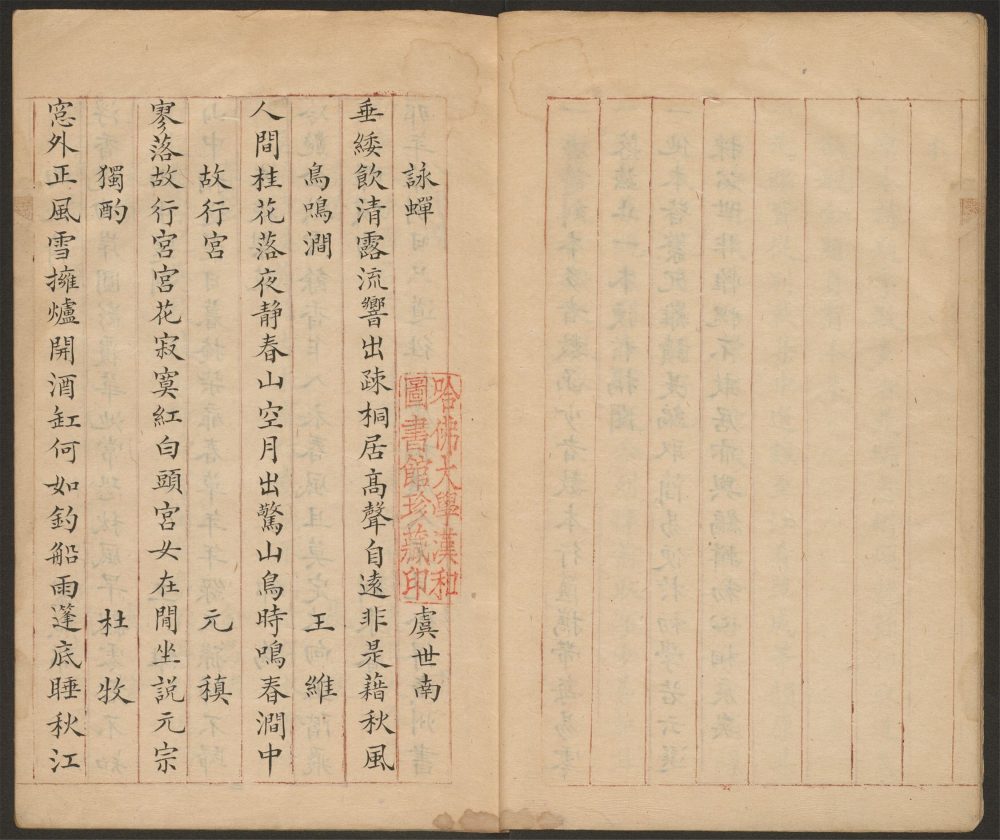 詠蟬 虞世南
垂緌飲清露流響出疎桐居高聲自遠非是藉秋風
鳥鳴澗 王維
人間桂花落夜靜春山空月出驚山鳥時鳴春澗中
故行宮 元稹
寥落故行宮宮花寂寞紅白頭宮女在閒坐說元宗
獨酌 杜牧
窓外正風雪擁爐開酒缸何如釣船雨蓬底睡秋江
哈佛大學漢和
圖書館珍藏印